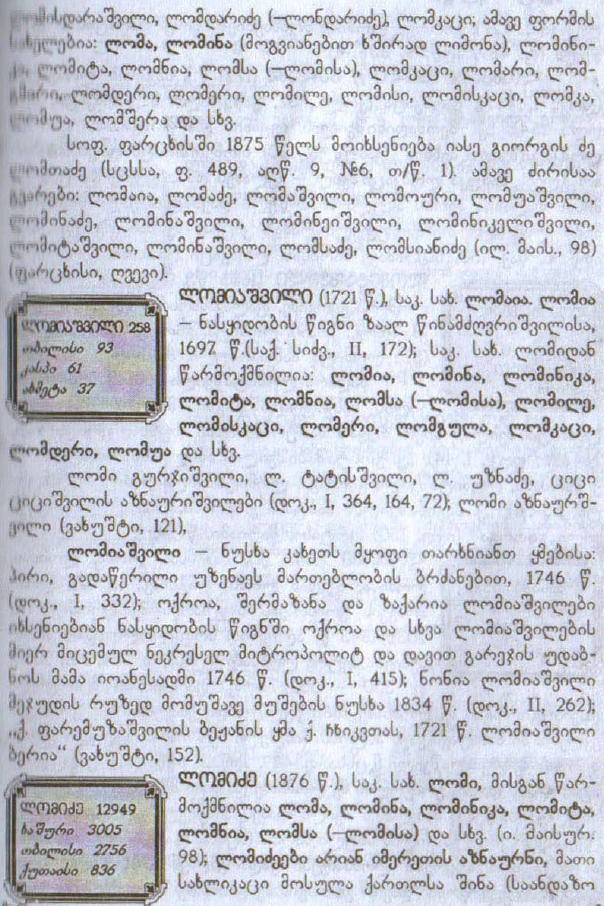 ლომისდარაშვილი, ლომდარიძე (—ლონდარიძე), ლომკაცი; ამავე ფორმის
სახელებია: ლომა, ლომინა (მოგვიანებით ხშირად ლიმონა), ლომინი-
კა, ლომიტა, ლომნია, ლომსა (—ლომისა), ლომკაცი, ლომარი, ლომ-
გმირი, ლომდერი, ლომერი, ლომილე, ლომისი, ლომისკაცი, ლომკა,
ლომუა, ლომშერა და სხვ.
სოფ. ფარცხისში 1875 წელს მოიხსენიება იასე გიორგის ძე
ლომთაძე (სცსსა, ფ. 489, აღწ. 9, №6, თ/წ. 1). ამავე ძირისაა
გვარები: ლომაია, ლომაძე, ლომაშვილი, ლომოური, ლომუაშვილი,
ლომინაძე, ლომინაშვილი, ლომინეიშვილი, ლომინიკელიშვილი,
ლომიტაშვილი, ლომინაშვილი, ლომსაძე, ლომსიანიძე (ილ. მაის., 98)
(ფარცხისი, ღვევი).
ლომიაშვილი (1721 წ.), საკ. სახ. ლომაია. ლომია
– ნასყიდობის წიგნი ზაალ წინამძღვრიშვილისა,
1697 წ.(საქ. სიძვ., II, 172); საკ. სახ. ლომიდან
წარმოქმნილია: ლომია, ლომინა, ლომინიკა,
ლომიტა, ლომნია, ლომსა (—ლომისა), ლომილე,
ლომისკაცი, ლომერი, ლომგულა, ლომკაცი,
ლომდერი, ლომუა და სხვ.
ლომიაშვილი 258
თბილისი 93
კასპი 61
ახმეტა 37
ლომი გურჯიშვილი, ლ. ტატისშვილი, ლ. უზნაძე, ციცი
ციციშვილის აზნაურიშვილები (დოკ., I, 364, 164, 72); ლომი აზნაურშ-
ვილი (ვახუშტი, 121),
ლომიაშვილი – ნუსხა კახეთს მყოფი თარხნიანთ ყმებისა:
პირი, გადაწერილი უზენაეს მართებლობის ბრძანებით, 1746 წ.
(დოკ., I, 332); ოქროა, შერმაზანა და ზაქარია ლომიაშვილები
იხსენიებიან ნასყიდობის წიგნში ოქროა და სხვა ლომიაშვილების
მიერ მიცემულ ნეკრესელ მიტროპოლიტ და დავით გარეჯის უდაბ-
ნოს მამა იოანესადმი 1746 წ. (დოკ., I, 415); ნონია ლომიაშვილი
მეჯუდის რუზედ მომუშავე მუშების ნუსხა 1834 წ. (დოკ., II, 262);
„ქ. ფარემუზაშვილის ბეჟანის ყმა ქ. ჩხიკვთას, 1721 წ. ლომიაშვილი
ბერია“ (ვახუშტი, 152).
ლომიძე (1876 წ.), საკ. სახ. ლომი, მისგან წარ-
მოქმნილია ლომა, ლომინა, ლომინიკა, ლომიტა,
ლომნია, ლომსა (—ლომისა) და სხვ. (ი. მაისურ.
98); ლომიძეები არიან იმერეთის აზნაურნი, მათი
სახლიკაცი მოსულა ქართლსა შინა (საანდაზო
ლომიძე 12949
ხაშური 3005
თბილისი 2756
ქუთაისი 836